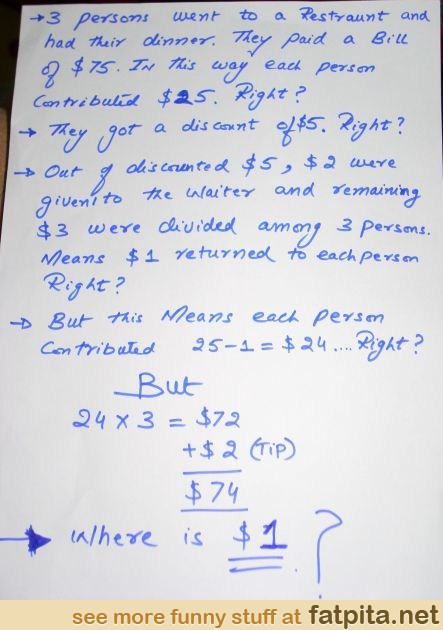 → 3 persons went to a Restraunt and
had their dinner. They paid a Bill
of $75. In this way each person
Contributed $25. Right?
→ They got a discount of $5. Right?
→ Out of discounted $5, $2 were
given to the waiter and remaining
$3 were divided among 3 persons.
Means $1 returned to each person
Right?
→ But this Means each person
Contributed 25-1 = $24.... Right?
But
24 x 3 = $72
+$2 (TiP)
$74
→ Where is $1 ?
see more funny stuff at fatpita.net